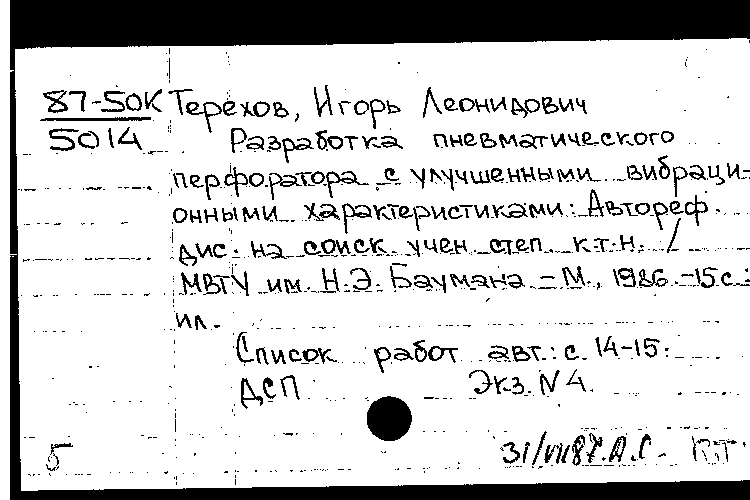 87-50К Терехов, Игорь Леонидович
5014 Разработка пневматического
перфоратора с улучшенными вибраци-
онными характеристиками: Автореф.
дис. на соиск. учен. степ. к.т.н. /
МВТУ им. Н.Э. Баумана. - М., 1986. - 15 с.:
ил.
Список работ авт.: с. 14-15.
ДСП Экз. N 4.
Б 31/VII87. А.С. - КТ